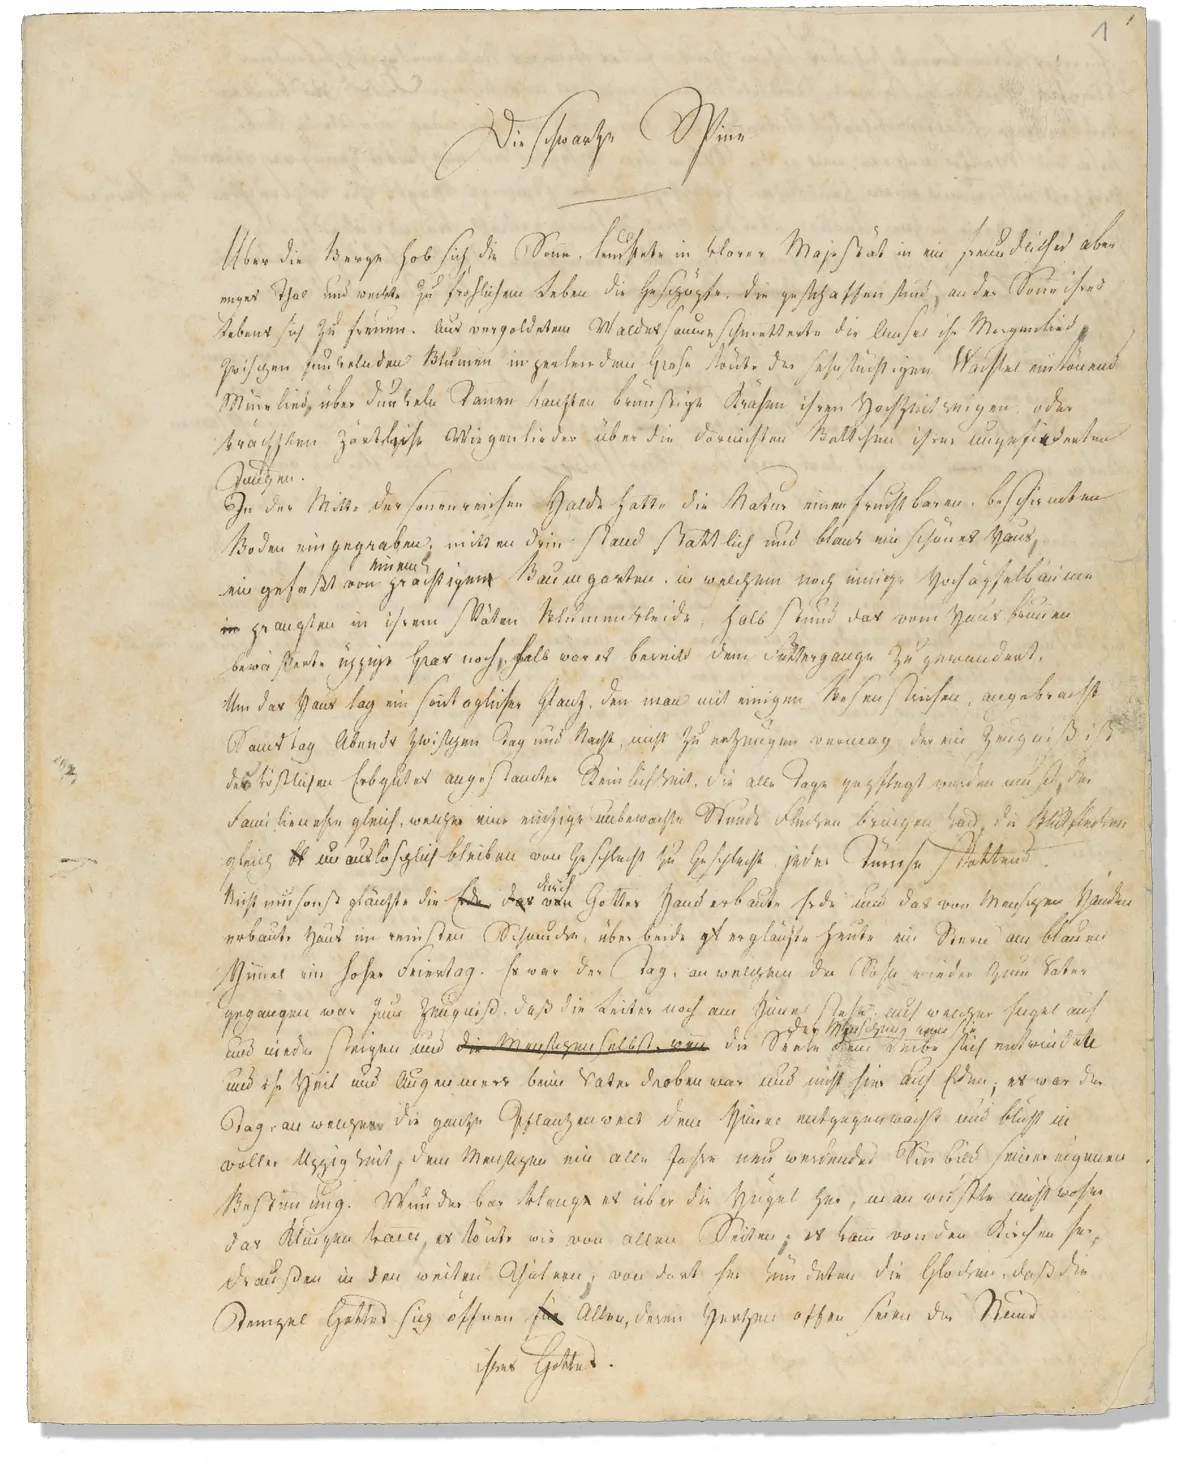 1
Die schwarze Spinne
Über die Berge hob sich die Sonne, leuchtete in klarer Majestät in ein freundliches aber
enges Thal und weckte zu frohlichem Leben die Geschöpfe, die geschaffen sind, an der Sonne ihres
Lebens sich zu freuen. Aus vergoldetem Waldessaume schmetterte die Amsel ihr Morgenlied,
zwischen funkelnden Blumen in perlendem Grase tönte der sehnsüchtigen Wachtel eintönend
Minnelied, über dunkeln Tannen tanzten brünstige Krähen ihren Hochzeitreigen oder
krächzten zärtliche Wiegenlieder über die dornichten Bettchen ihrer ungefiederten
Jungen.
In der Mitte der sonnenreichen Halde hatte die Natur einen fruchtbaren, beschirmten
Boden eingegraben, mitten drin stand stattlich und blank ein schönes Haus,
eingefaßt von einem prächtigen Baumgarten, in welchem noch einige Hochäpfelbäume
prangten in ihrem späten Blumenkleide, halb stund das vom Hausbrunnen
bewässerte üppige Gras noch, halb war es bereits dem Futtergange zugewandert.
Um das Haus lag ein sonntäglicher Glanz, den man mit einigen Besenstrichen, angebracht
Samstag Abends zwischen Tag und Nacht, nicht zu erzeugen vermag, der ein Zeugniß ist
des köstlichen Erbgutes angestammter Reinlichkeit, die alle Tage gepflegt werden muß, der
Familienehre gleich, welcher eine einzige unbewachte Stunde Flecken bringen kann, die Blutflecken
gleich unauslöschlich bleiben von Geschlecht zu Geschlecht, jeder Tünche spottend.
Nicht umsonst glänzte die durch Gottes Hand erbaute Erde und das von Menschen Händen
erbaute Haus im reinsten Schmucke, über beide erglänzte heute ein Stern am blauen
Himmel ein hoher Feiertag. Es war der Tag, an welchem der Sohn wieder zum Vater
gegangen war zum Zeugniß, daß die Leiter noch am Himmel stehe, auf welcher Engel auf
und nieder steigen und die Menschen selbst, wenn die Seele dem Leibe sich entwindet
und ihr Heil und Augenmerk beim Vater droben war und nicht hier auf Erden; es war der
Tag, an welchem die ganze Pflanzenwelt dem Himmel entgegenwachst und blüht in
voller Üppigkeit, dem Menschen ein alle Jahre neu werdendes Sinnbild seiner eigenen
Bestimmung. Wunderbar klang es über die Hügel her, man wußte nicht woher
das Klingen kam, es tönte wie von allen Seiten; es kam von den Kirchen her,
draußen in den weiten Thälern, von dort her kündeten die Glocken, daß die
Tempel Gottes sich öffnen für Allen, deren Herzen offen seien der Stimme
ihres Gottes.